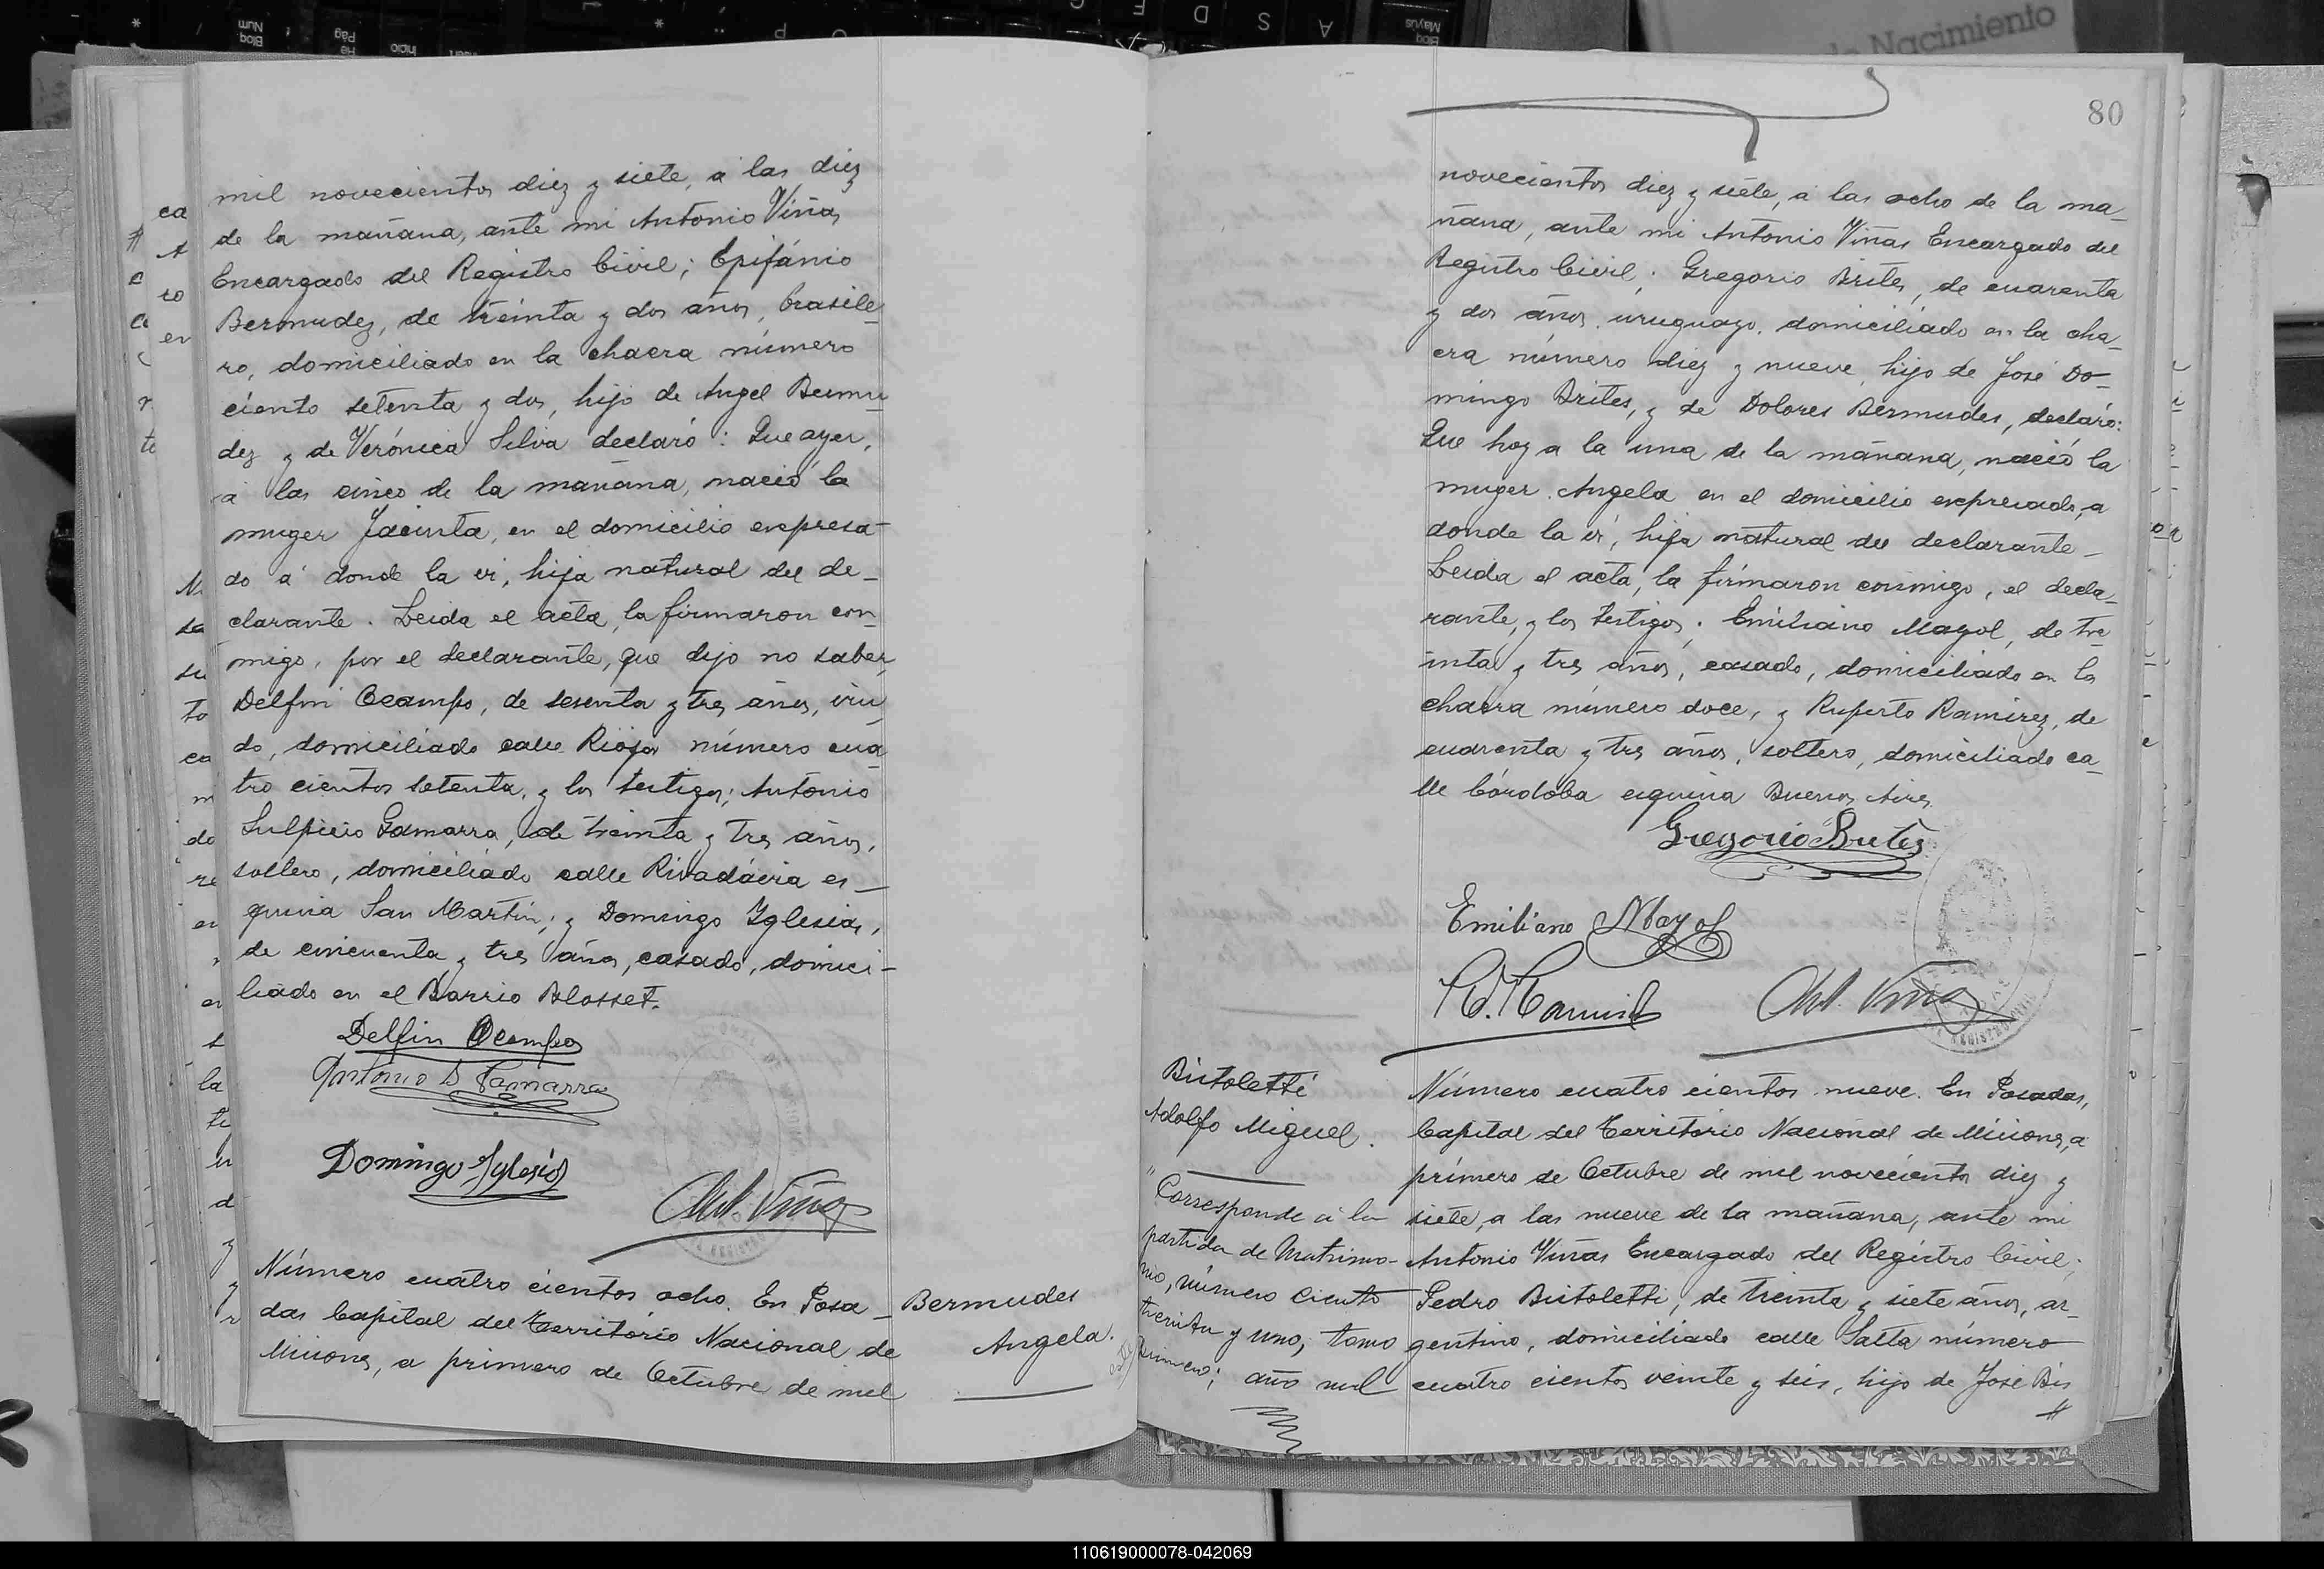 mil novecientos diez y siete, a las diez
de la mañana, ante mi Antonio Viñas
Encargado del Registro Civil; Epifánio
Bermudez, de treinta y dos años, brasile-
ro, domiciliado en la chacra número
ciento setenta y dos, hijo de Angel Bermu-
dez y de Verónica Silva declaró: Que ayer,
á las cinco de la mañana, nació la
muger Jacinta, en el domicilio expresa-
do á donde la vi, hija natural del de-
clarante. Leida el acta, la firmaron con-
migo, por el declarante, que dijo no saber,
Delfin Ocampo, de sesenta y tres años, viu-
do, domiciliado calle Rioja número cua-
tro cientos setenta, y los testigos; Antonio
Sulpicio Gamarra, de treinta y tres años,
soltero, domiciliado calle Rivadávia es-
quina San Martin; y Domingo Yglesias,
de cincuenta y tres años, casado, domici-
liado en el Barrio Blosset.
Delfin Ocampo
Antonio S Gamarra
Domingo Yglesias
Ant. Viñas
Número cuatro cientos ocho. En Posa-
das Capital del Territorio Nacional de
Misiones, a primero de Octubre de mil
Bermudes
Angela.
80
novecientos diez y siete, a las ocho de la ma-
ñana, ante mi Antonio Viñas Encargado del
Registro Civil; Gregorio Brites, de cuarenta
y dos años, uruguayo, domiciliado en la cha-
cra número diez y nueve, hijo de José Do-
mingo Brites, y de Dolores Bermudes, declaró:
Que hoy a la una de la mañana, nació la
muger Angela en el domicilio expresado, a
donde la vi, hija natural del declarante-
Leida el acta, la firmaron conmigo, el decla-
rante, y los testigos; Emiliano Mayol, de tre
inta y tres años, casado, domiciliado en la
chacra número doce, y Ruperto Ramirez, de
cuarenta y tres años, soltero, domiciliado ca-
lle Córdoba esquina Buenos Aires.
Gregorio Brites
Emiliano Mayol
R. Ramirez
Ant. Viñas
Bistoletti
Adolfo Miguel.
"Corresponde á la
partida de Matrimo-
nio, número ciento
treinta y uno, tomo
primero; año mil
Número cuatro cientos nueve. En Posadas,
Capital del Territorio Nacional de Misiones, a
primero de Octubre de mil novecientos diez y
siete, a las nueve de la mañana, ante mi
Antonio Viñas Encargado del Registro Civil;
Pedro Bistoletti, de treinta y siete años, ar-
gentino, domiciliado calle Salta número
cuatro cientos veinte y seis, hijo de José Bis
#
de Nacimiento
110619000078-042069